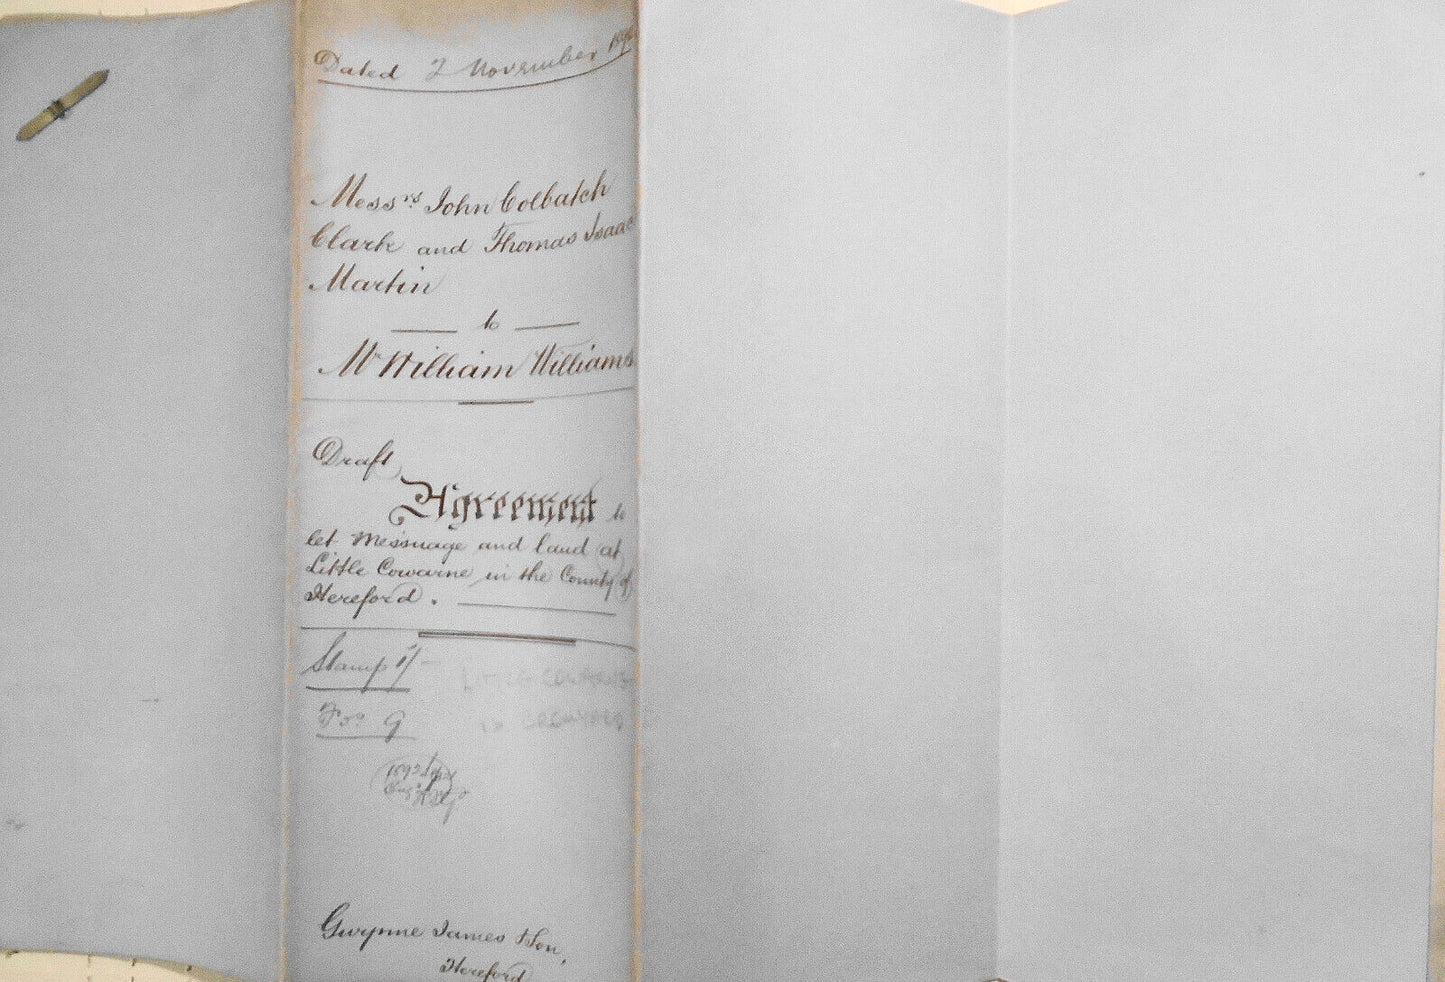 Dated 2 November
Messrs John Colbatch
Clark and Thomas Isaac
Martin
to
Mr William Williams
Draft
Agreement to
let Messuage and land at
Little Cowarne in the County of
Hereford.
Stamp 1/-
Fos. 9
LITTLE COWARNE
Gwynne James & Son,
Hereford